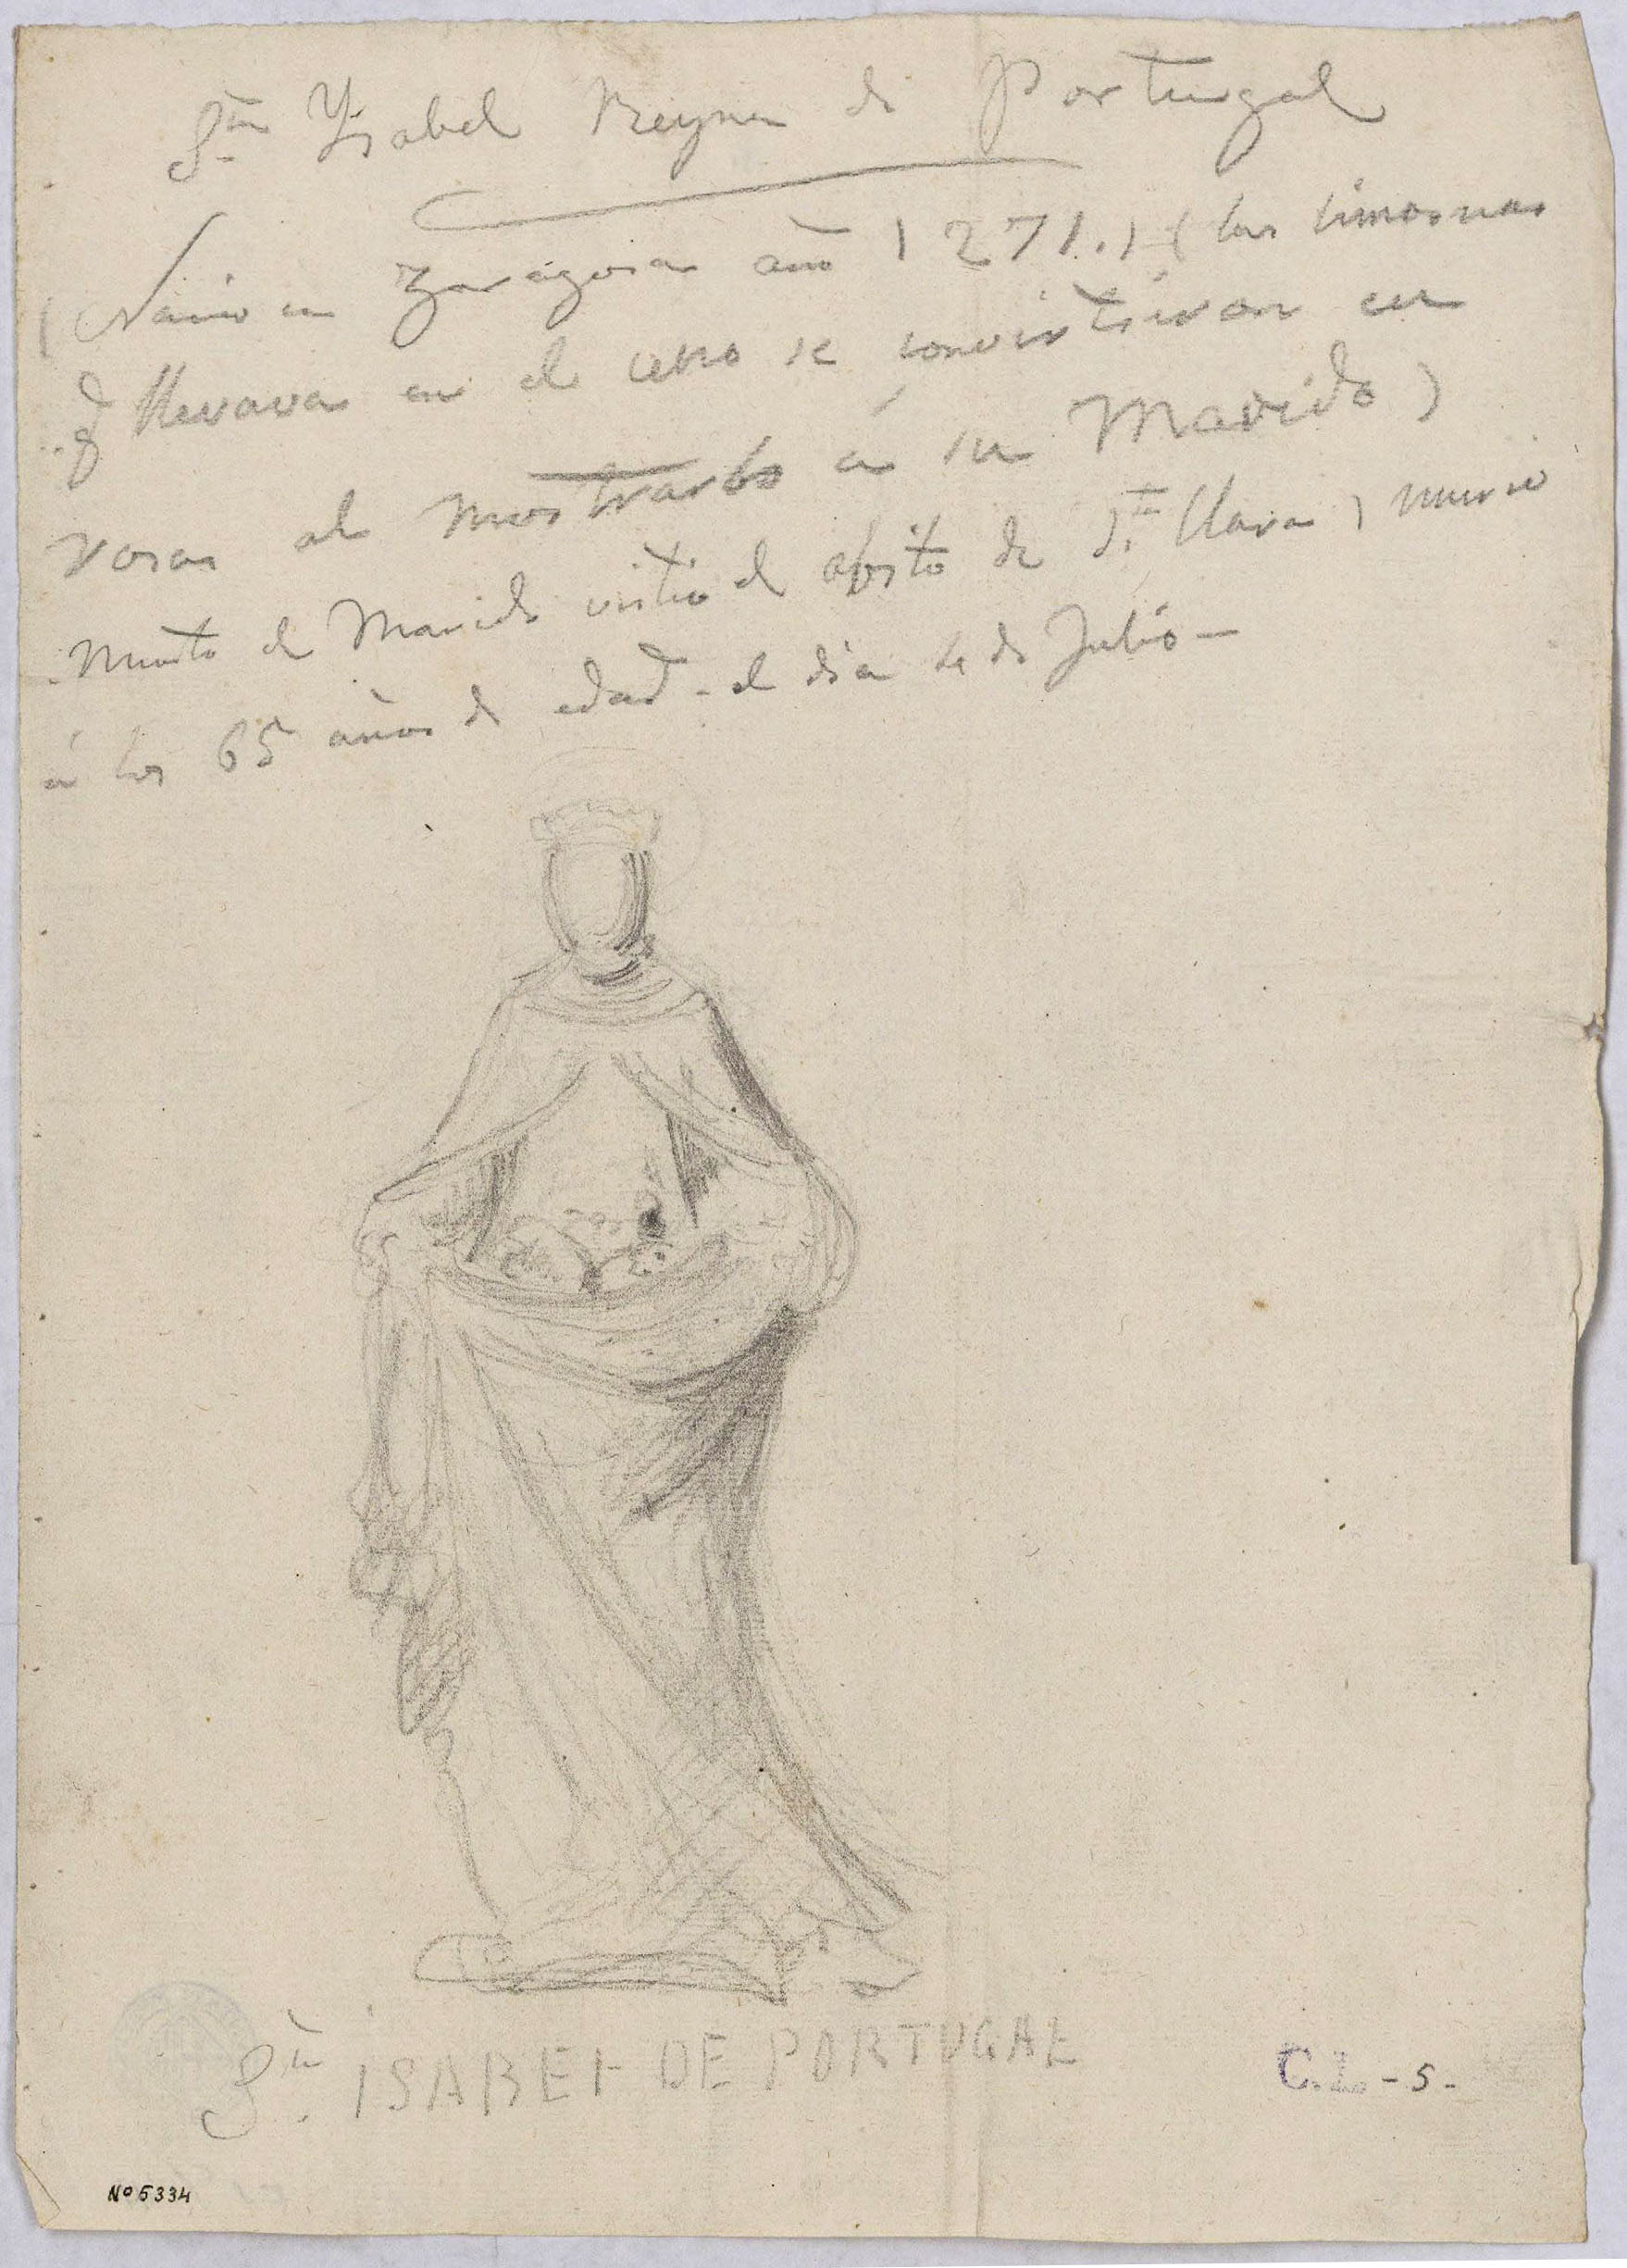 Sta Ysabel Reyna de Portugal
(Nacio en Zaragosa año 1271.) (las limosnas
q llevava en el ceno se convirtieron en
rosas al mostrarlo a su Marido)
muerto el Marido vistio el abito de Sta Clara, murio
á los 65 años de edad - el dia 4 de Julio -
Sta ISABEL DE PORTUGAL
C.L - 5 -
Nº 5334